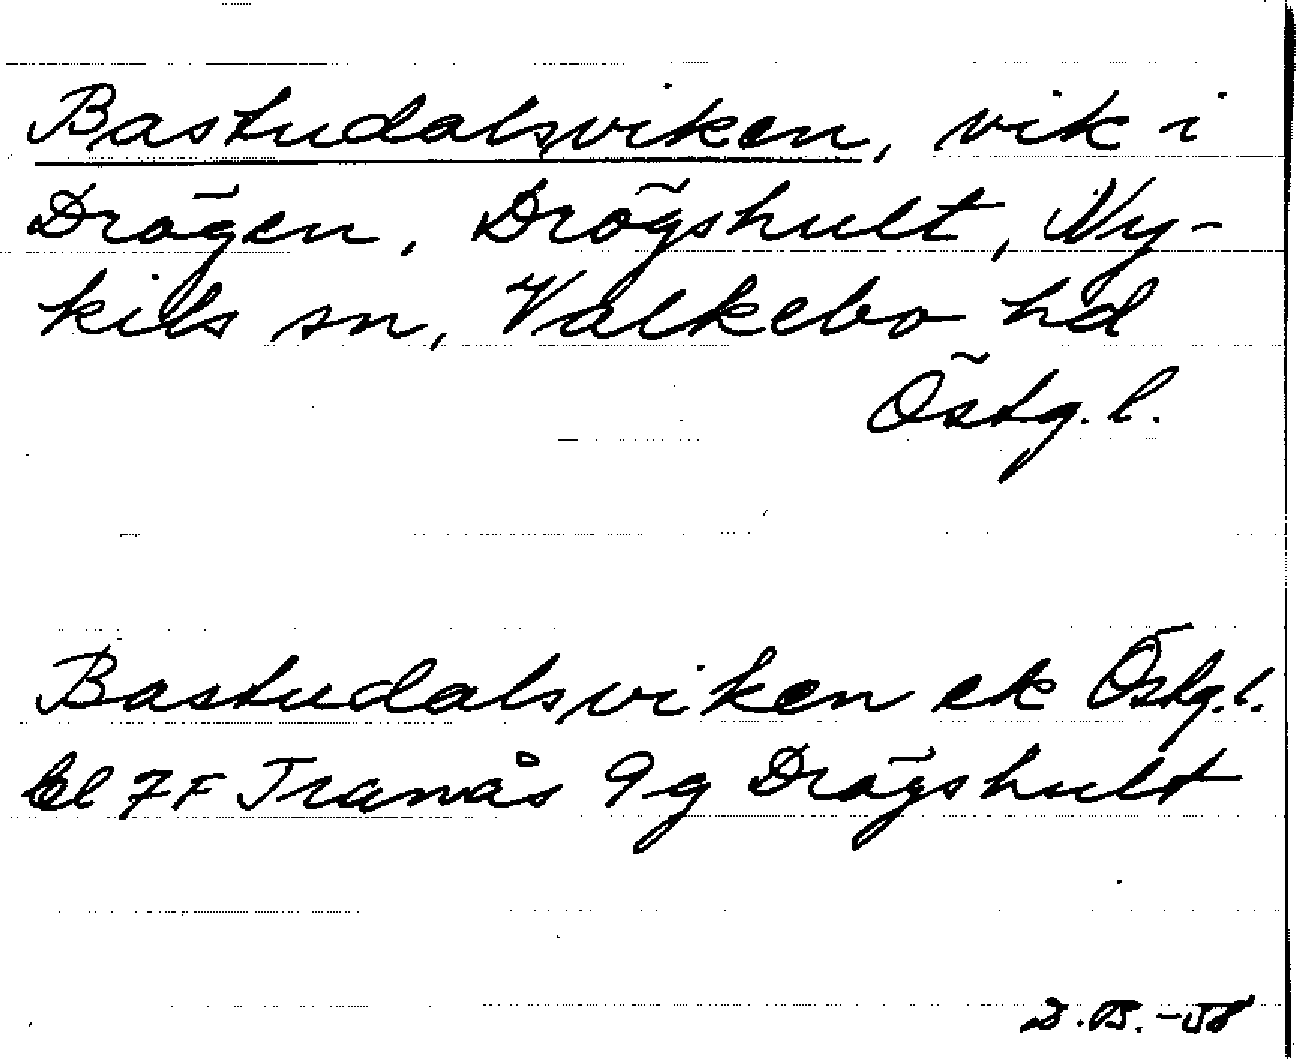 Bastudalsviken, vik i
Drögen, Drögshult, Ny-
kils sn, Valkebo hd
Östg. l.
Bastudalsviken ek Östg. l.
bl 7F Tranås 9g Drögshult
D.B.-58